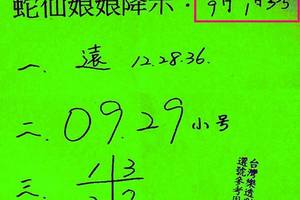 蛇仙娘娘降示：
一、遠 12.28.36.
二、09.29 小号
三、13
台灣樂透
選號參考用